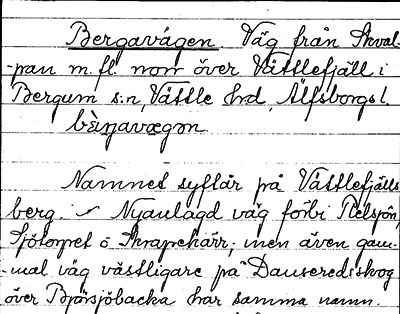 Bergavägen Väg från Skval-
-pan m.fl. norr över Vättlefjäll i
Bergum s:n Vättle hrd, Älfsborgs l.
bæ̀rjavægən
Namnet syftar på Vättlefjälls
berg. Nyanlagd väg förbi
Sjötorpet o Skrapekärr, men även gam-
-mal väg västligare på Dansereds skog
över Björsjöbacka har samma namn.